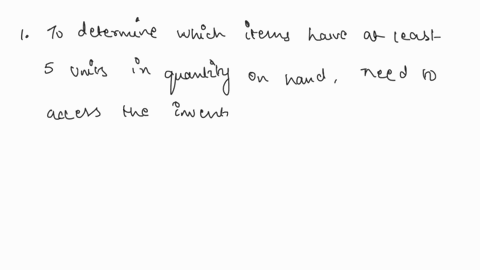 1. To determine which items have at least
5 units in quantity on hand, need to
access the invent